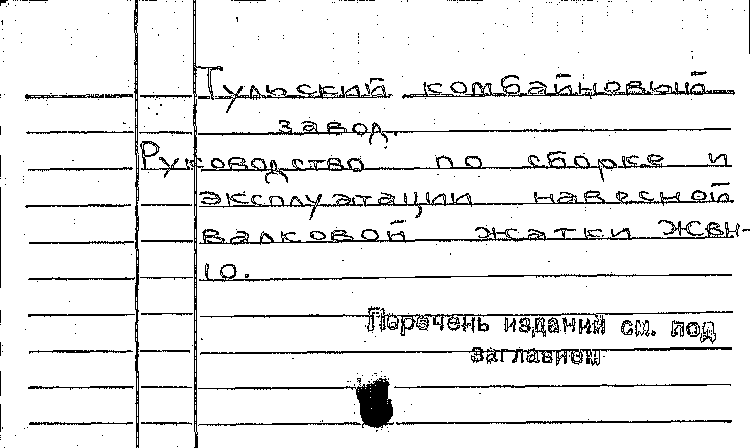 Тульский комбайновый
завод.
Руководство по сборке и
эксплуатации навесной
валковой жатки ЖВН-
10.
Перечень изданий см. под
заглавием